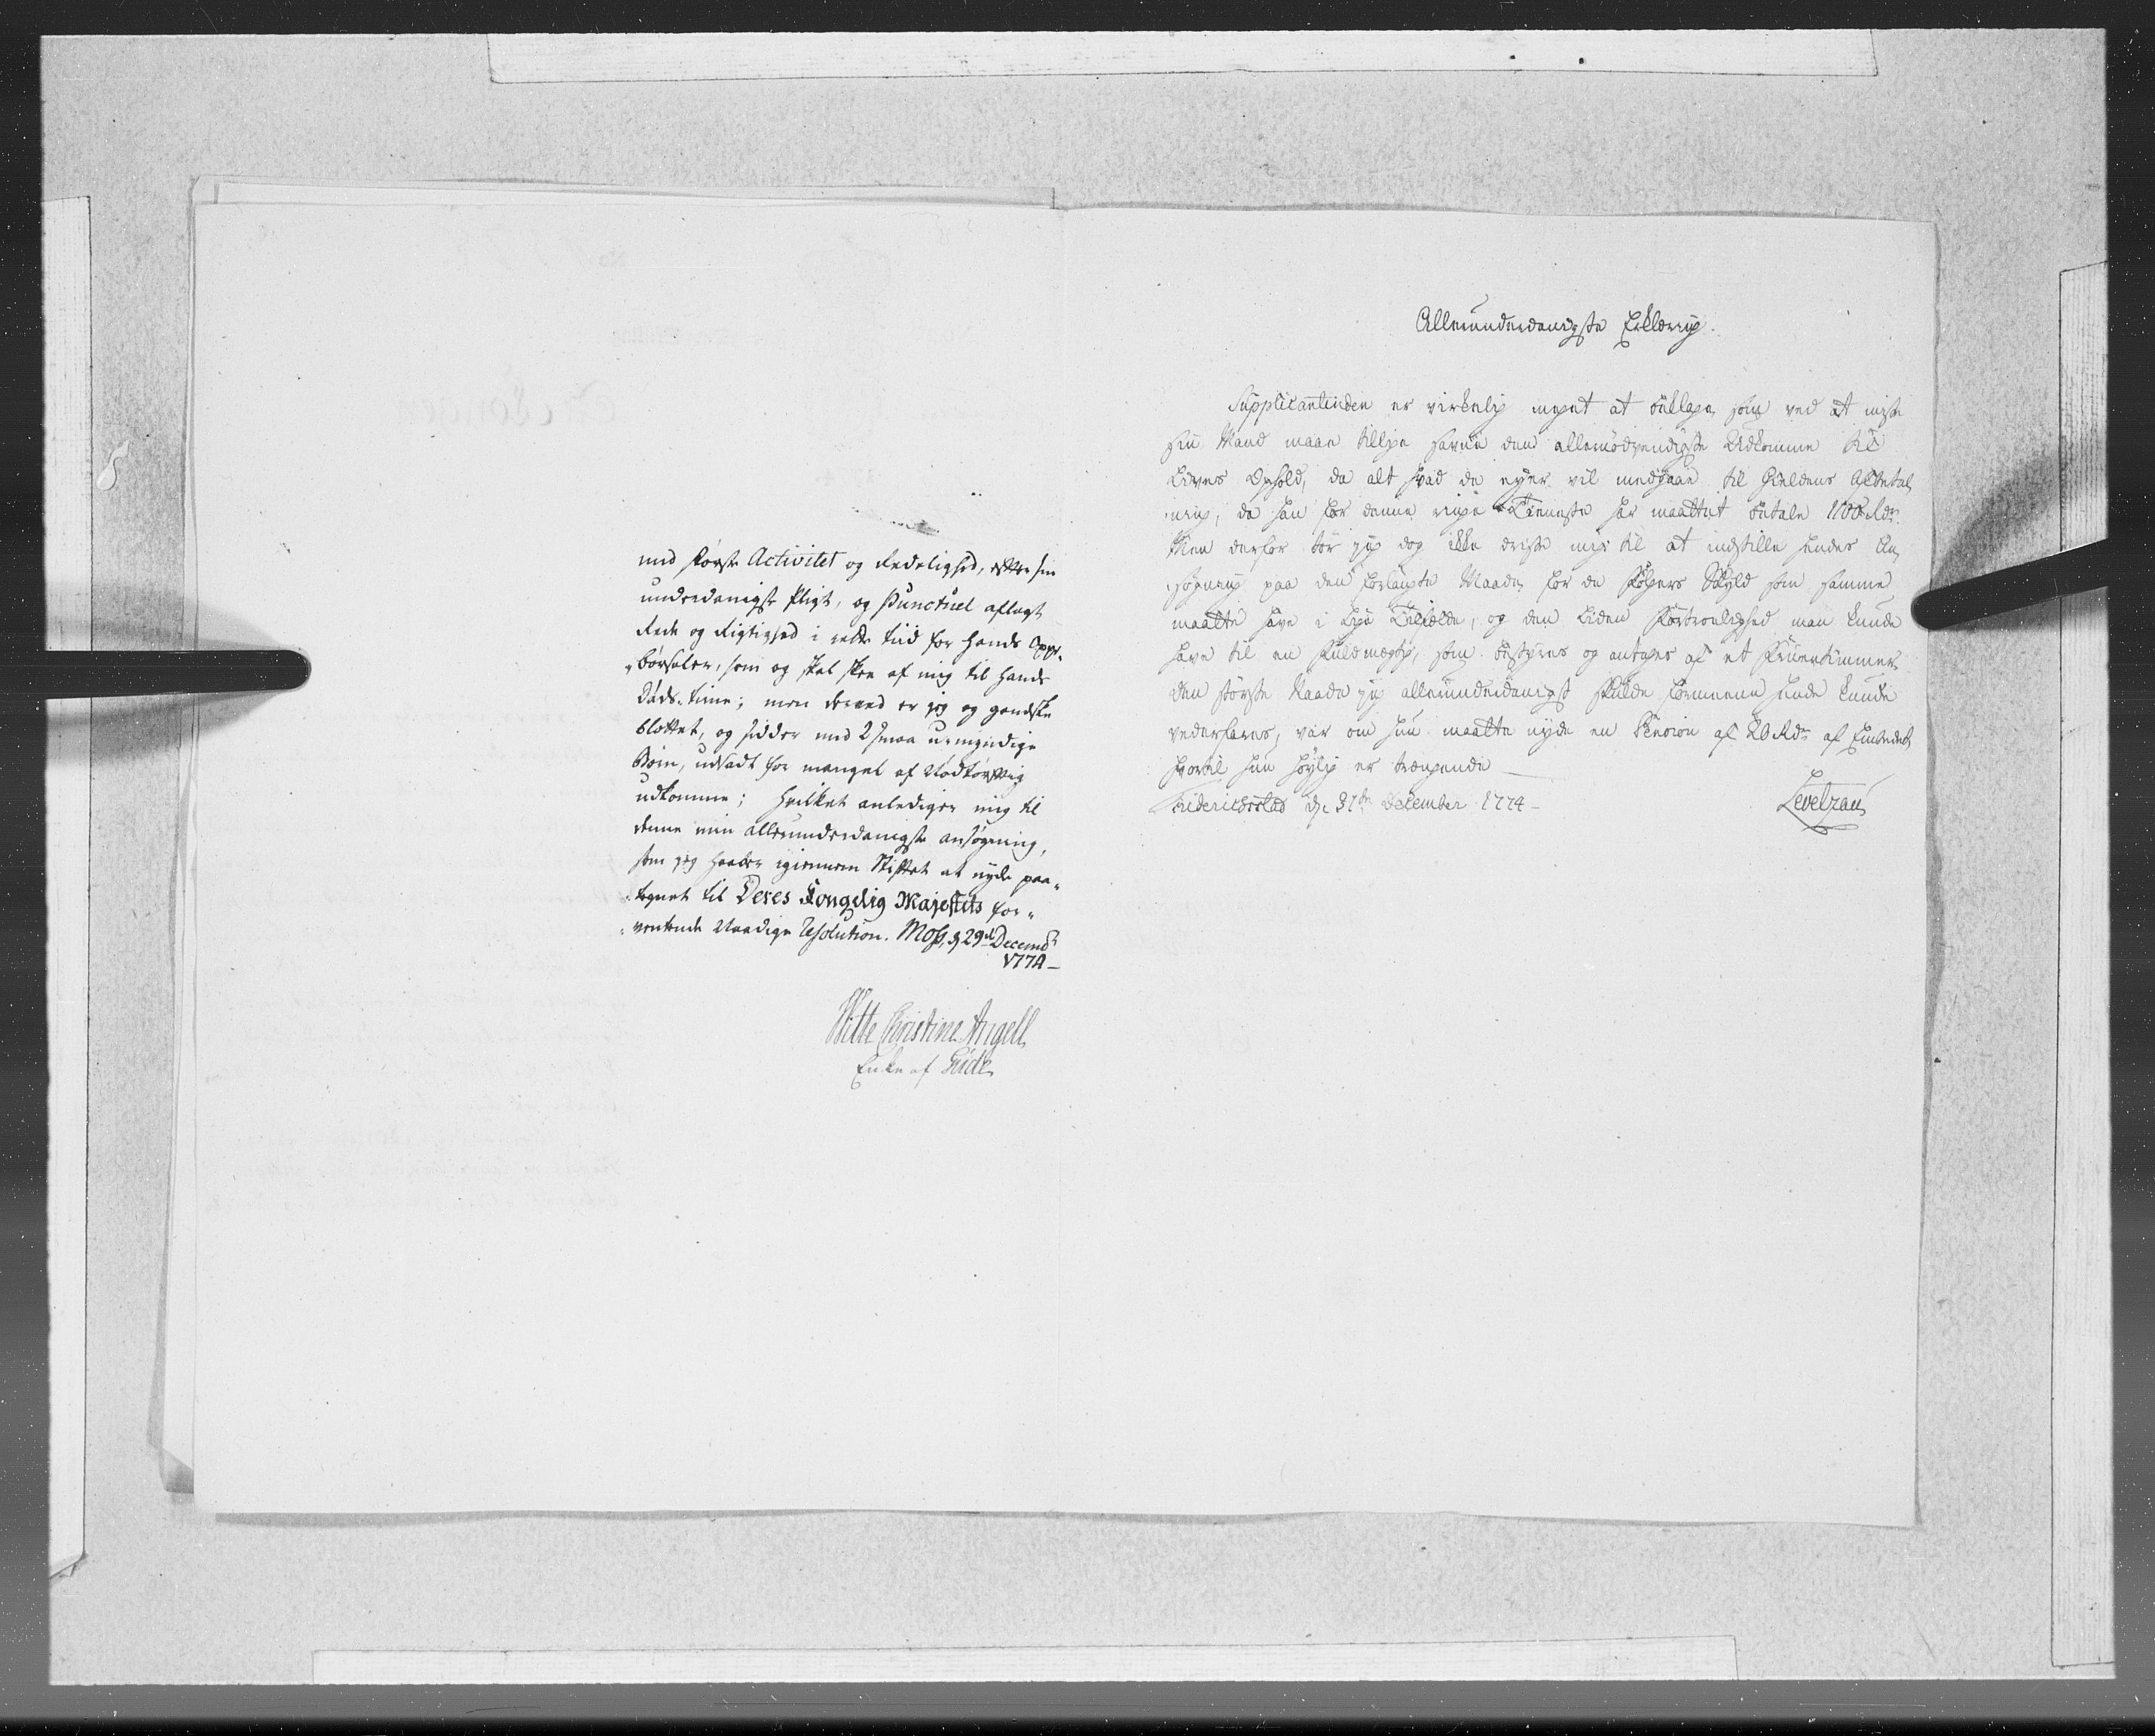 med største Activitet og Redelighed, efter sin
underdanigste Pligt, og Punctuel aflagt
Rede og Rigtighed i rette tiid for Hands Opp„
„børseler, som og skal skee af mig til Hands
Døds-time; men derved er jeg og gandske
blottet, og sidder med 2 smaa u-myndige
Børn, udsadt for mangel af Nødtørftig
udkomme; Hvilket anlediger mig til
denne min allerunderdanigste ansøgning,
som jeg haaber igiennem Stiftet at nyde paa„
„tegnet til Deres Kongelig Majestets for„
„ventende Naadige Resolution. Moss, d 29de Decembr
1774 —
Witte Christine Angell
Enke af Gude
Allerunderdanigste Erklæring.
Supplicantinden er virkelig meget at beklage, som ved at miste
sin Mand maae tillige savne den allernødvendigste Udkomme til
Livets Ophold, da alt hvad de eyer vil medgaae til Gieldens Afbetal
ning, da han for denne ringe Tieneste har maattet betale 1100 Rdr.
Men derfor tør jeg dog ikke driste mig til at indstille hendes An
søgning paa den forlangte Maade, for de Følgers Skyld som samme
maatte have i lige Tilfælde, og den liden Fortroelighed man kunde
have til en Fuldmægtig, som bestyres og antages af et Fruentimmer.
Den største Naade jeg allerunderdanigst skulde formeene hende kunde
vederfares, var om hun maatte nyde en Pension af 20 Rdr. af Embedet
hvortil hun høylig er trængende —
Fridericksstad d. 31te December 1774 —
Levetzau